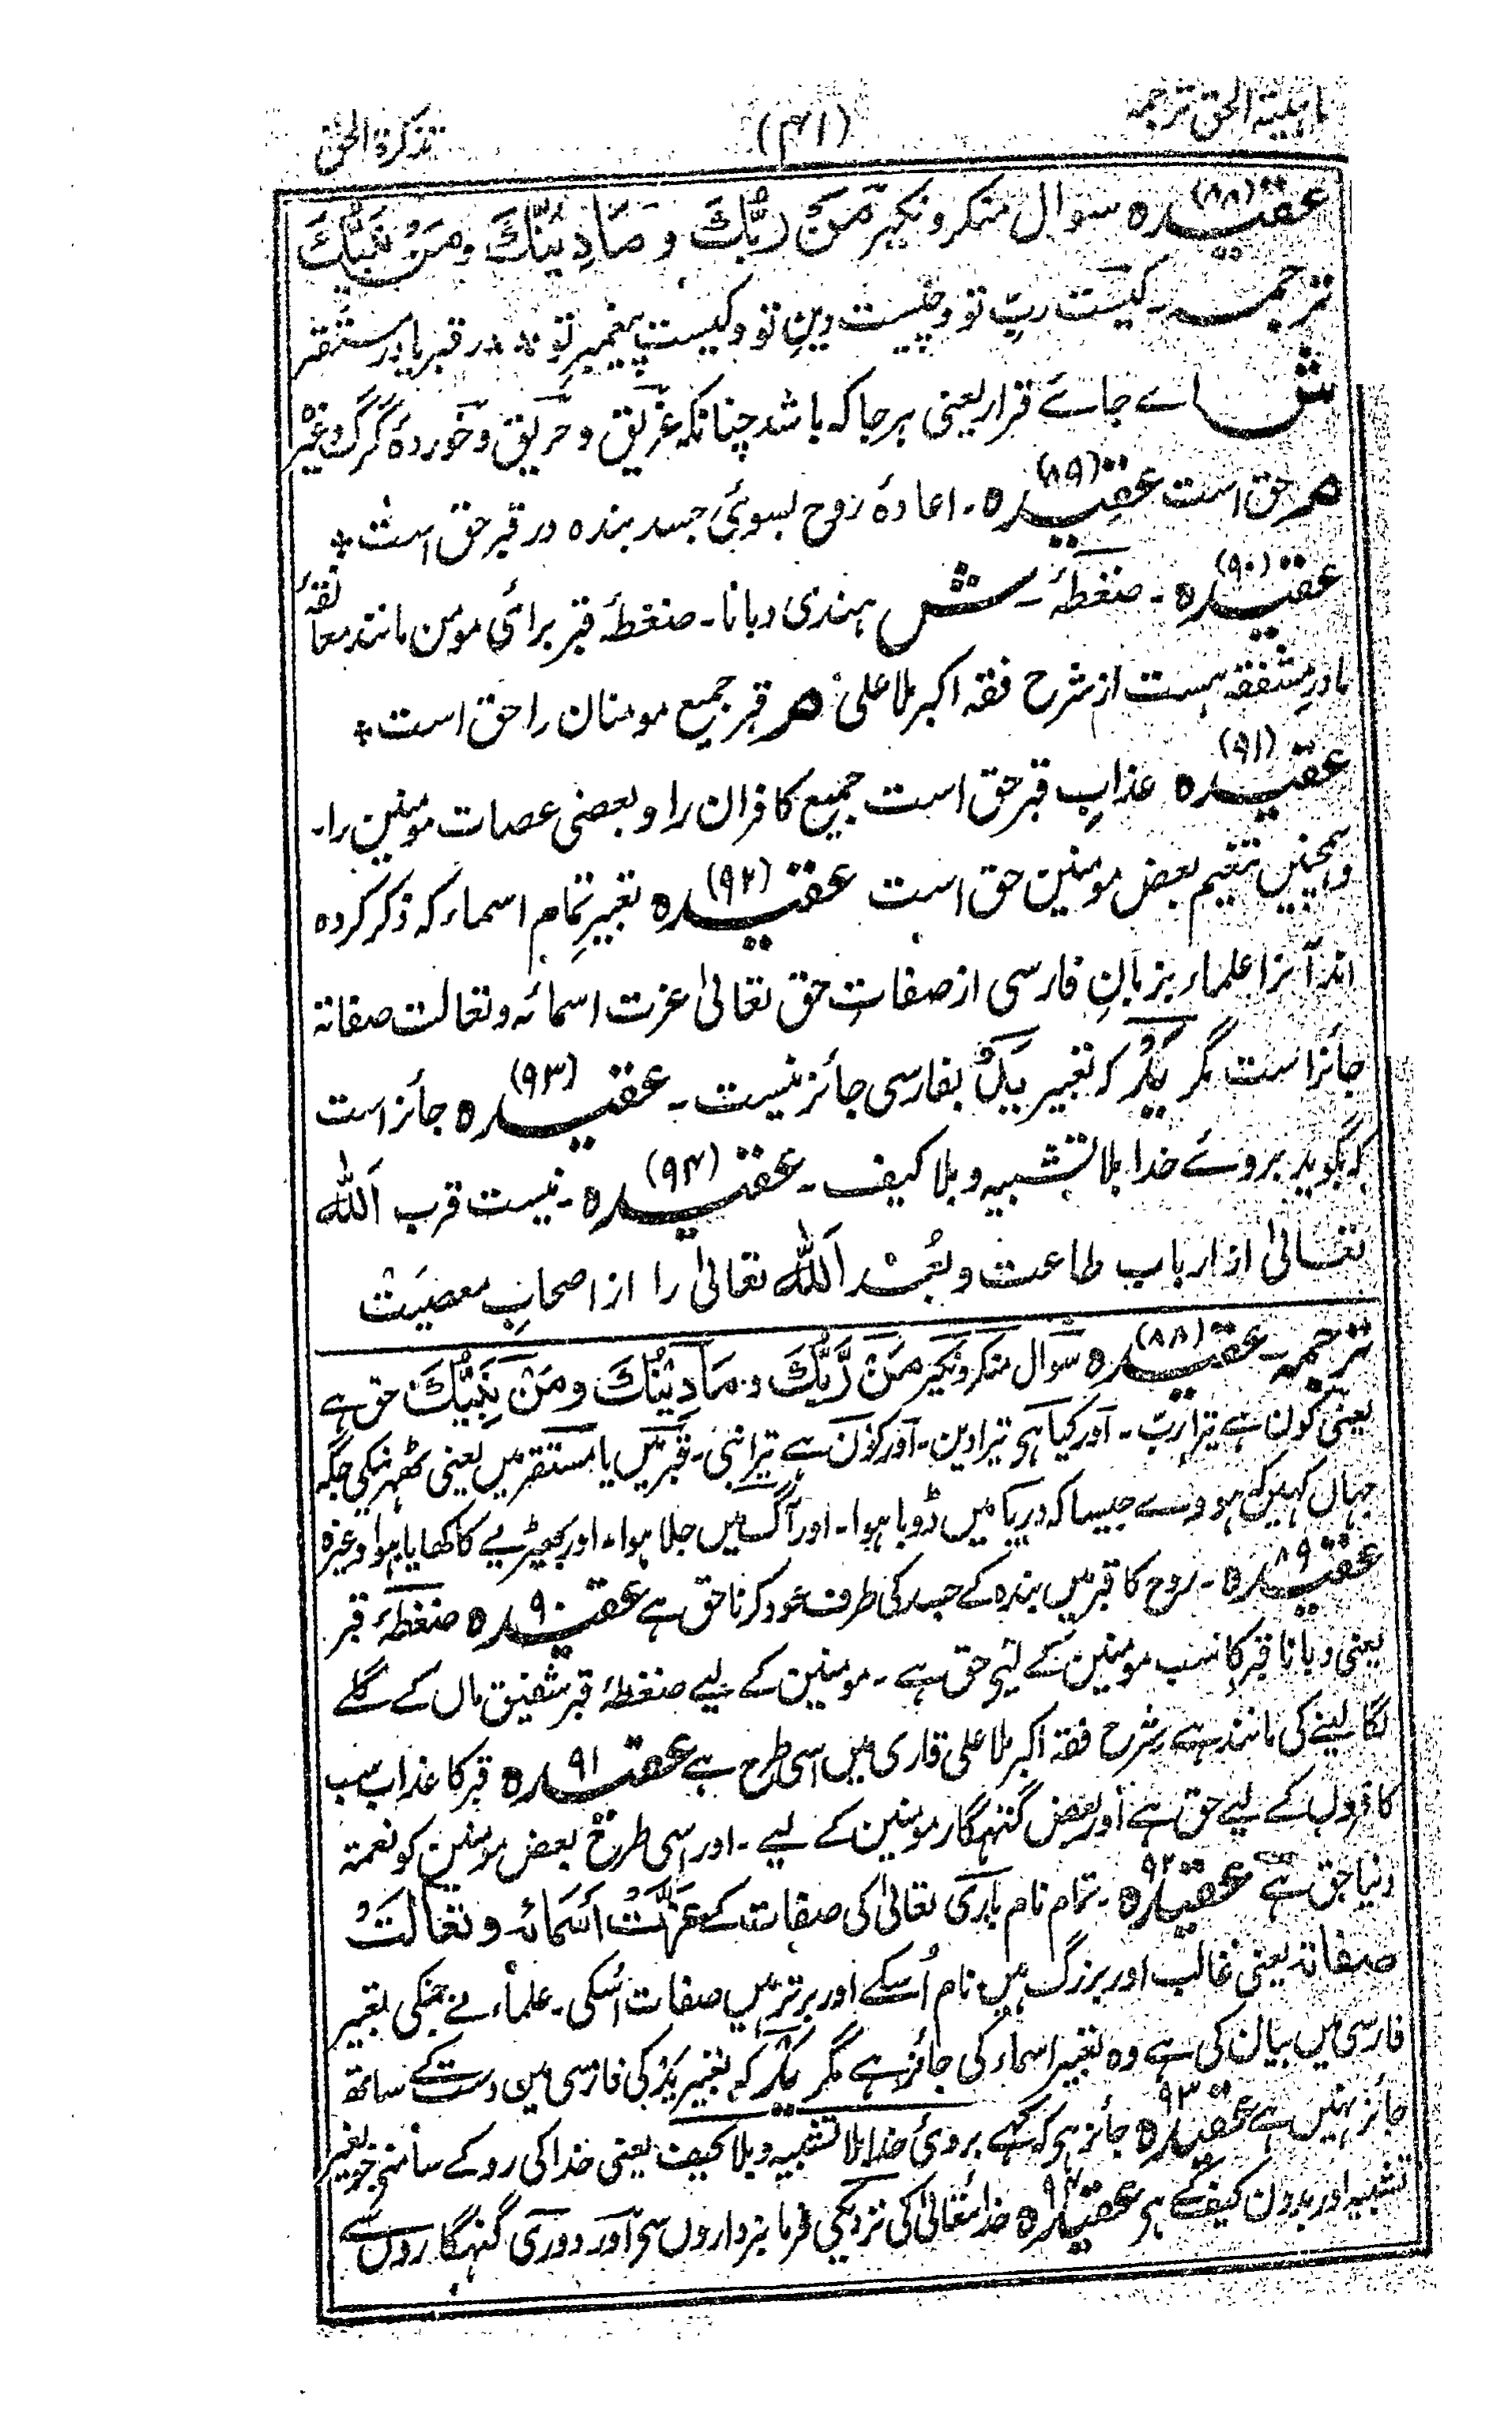 ترجمہ
(۴۱)
تذکرۃ الحق
عقیدہ (۸۸) سوال منکر و نکیر مَنْ رَبُّكَ وَ مَا دِیْنُكَ وَمَنْ نَبِیُّكَ
ترجمہ۔ کیست ربِّ تو و چیست دینِ تو و کیست پیغمبرِ تو ٭ در قبر یا در مستقر
ش اے جائے قرار یعنی ہر جا کہ باشد چنانکہ غریق و حریق و خوردۂ گرگ وغیر
ھر حق است عقیدہ (۸۹)۔ اعادۂ روح بسوئے جسد بندہ در قبر حق است ٭
عقیدہ (۹۰)۔ ضغطۂ۔ ش ہندی دبانا۔ ضغطۂ قبر برائے مومن مانند معانقۂ
مادرِ مشفقہ ہست از شرح فقہ اکبر ملا علی ھر قبر جمیع مومنان را حق است ٭
عقیدہ (۹۱) عذابِ قبر حق است جمیع کافران را و بعضی عصات مومنین را۔
وہمچنیں تنعیم بعض مومنین حق است عقیدہ (۹۲) تعبیرِ تمام اسماء کہ ذکر کردہ
اند آنرا علماء بزبانِ فارسی از صفاتِ حق تعالیٰ عزت اسمائہ و تعالت صفاتہ
جائز است مگر یَدْ کہ تعبیر یَدْ بفارسی جائز نیست۔ عقیدہ (۹۳) جائز است
کہ بگوید بروئے خدا بلا تشبیہ و بلا کیف۔ عقیدہ (۹۴)۔ نیست قرب اَللّٰہ
تعالیٰ از ارباب طاعت و بُعْد اَللّٰہ تعالیٰ را از اصحابِ معصیت
ترجمہ۔ عقیدہ (۸۸) سوال منکر و نکیر مَنْ رَّبُّكَ و مَا دِیْنُكَ و مَنْ نَبِیُّكَ حق ہے
یعنی کون ہے تیرا ربّ۔ اور کیا ہی تیرا دین۔ اور کون ہے تیرا نبی۔ قبر میں یا مستقر میں یعنی ٹھہرنیکی جگہ
جہاں کہیں کہ ہووے جیسا کہ دریا میں ڈوبا ہوا۔ اور آگ میں جلا ہوا، اور بھیڑیے کا کھایا ہوا وغیرہ
عقیدہ ۸۹۔ روح کا قبر میں بندہ کے جسد کی طرف عود کرنا حق ہے عقیدہ ۹۰ ضغطۂ قبر
یعنی دبانا قبر کا سب مومنین کے لئیے حق ہے۔ مومنین کے لیے ضغطۂ قبر شفیق ماں کے گلے
لگا لینے کی مانند ہے شرح فقہ اکبر ملا علی قاری میں اسی طرح ہے عقیدہ ۹۱ قبر کا عذاب سب
کافروں کے لیے حق ہے اور بعض گنہگار مومنین کے لیے۔ اور اسی طرح بعض مومنین کو نعمۃ
دنیا حق ہے عقیدہ ۹۲۔ تمام نام باری تعالیٰ کی صفات کے عَزَّتْ اَسْمَائہ و تعَالَتْ
صفاتہ یعنی غالب اور بزرگ ہیں نام اُسکے اور برتر ہیں صفات اُسکی۔ علماء نے جنکی تعبیر
فارسی میں بیان کی ہے وہ تعبیر اسماء کی جائز ہے مگر یَدْ کہ تعبیر یَدْ کی فارسی میں دست کے ساتھ
جائز نہیں ہے عقیدہ ۹۳ جائز ہی کہ کہے بروئ خدا بلا تشبیہ و بلا کیف یعنی خدا کی رو کے سامنی جو بغیر
تشبیہ اور بدون کیف کے ہی عقیدہ ۹۴ خدا تعالیٰ کی نزدیکی فرمانبرداروں سی اور دوری گنہگاروں سے